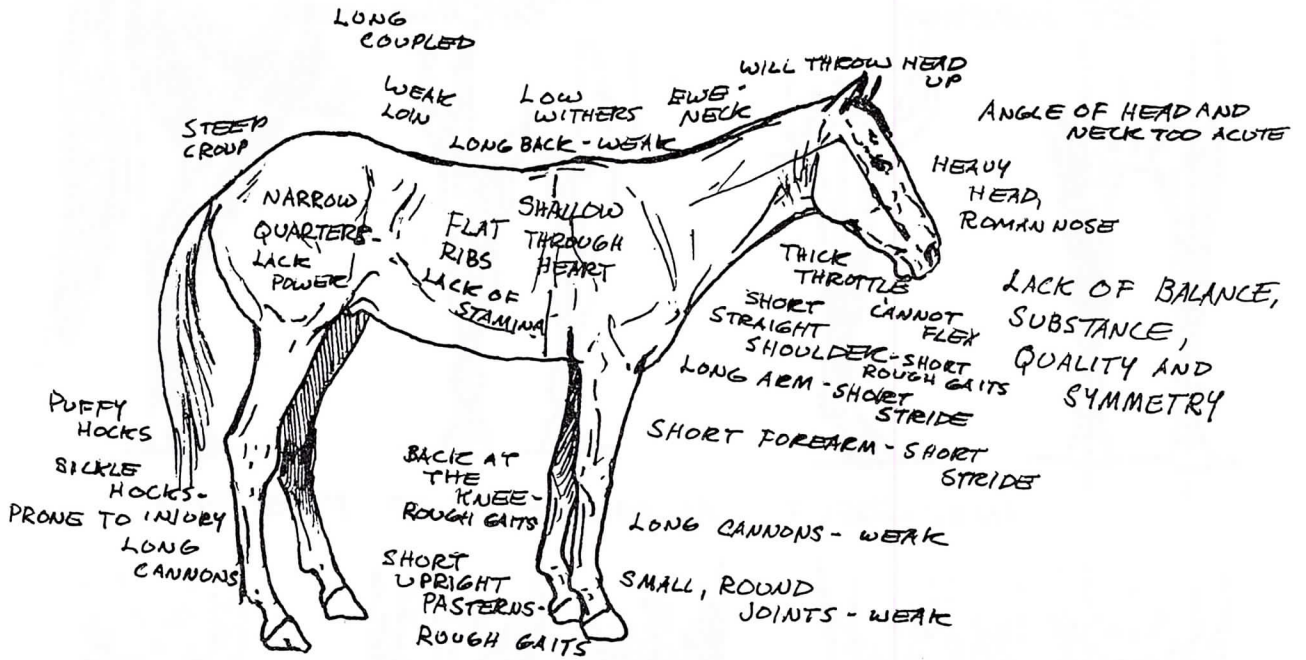 LONG
COUPLED
WEAK
LOIN
LOW
WITHERS
EWE-
NECK
WILL THROW HEAD
UP
STEEP
CROUP
LONG BACK - WEAK
ANGLE OF HEAD AND
NECK TOO ACUTE
HEAVY
HEAD,
ROMAN NOSE
NARROW
QUARTERS-
LACK
POWER
FLAT
RIBS
LACK OF
STAMINA
SHALLOW
THROUGH
HEART
THICK
THROTTLE
CANNOT
FLEX
LACK OF BALANCE,
SUBSTANCE,
QUALITY AND
SYMMETRY
SHORT
STRAIGHT
SHOULDER-SHORT
ROUGH GAITS
LONG ARM - SHORT
STRIDE
SHORT FOREARM - SHORT
STRIDE
PUFFY
HOCKS
SICKLE
HOCKS-
PRONE TO INJURY
LONG
CANNONS
BACK AT
THE
KNEE-
ROUGH GAITS
LONG CANNONS - WEAK
SHORT
UPRIGHT
PASTERNS-
ROUGH GAITS
SMALL, ROUND
JOINTS - WEAK